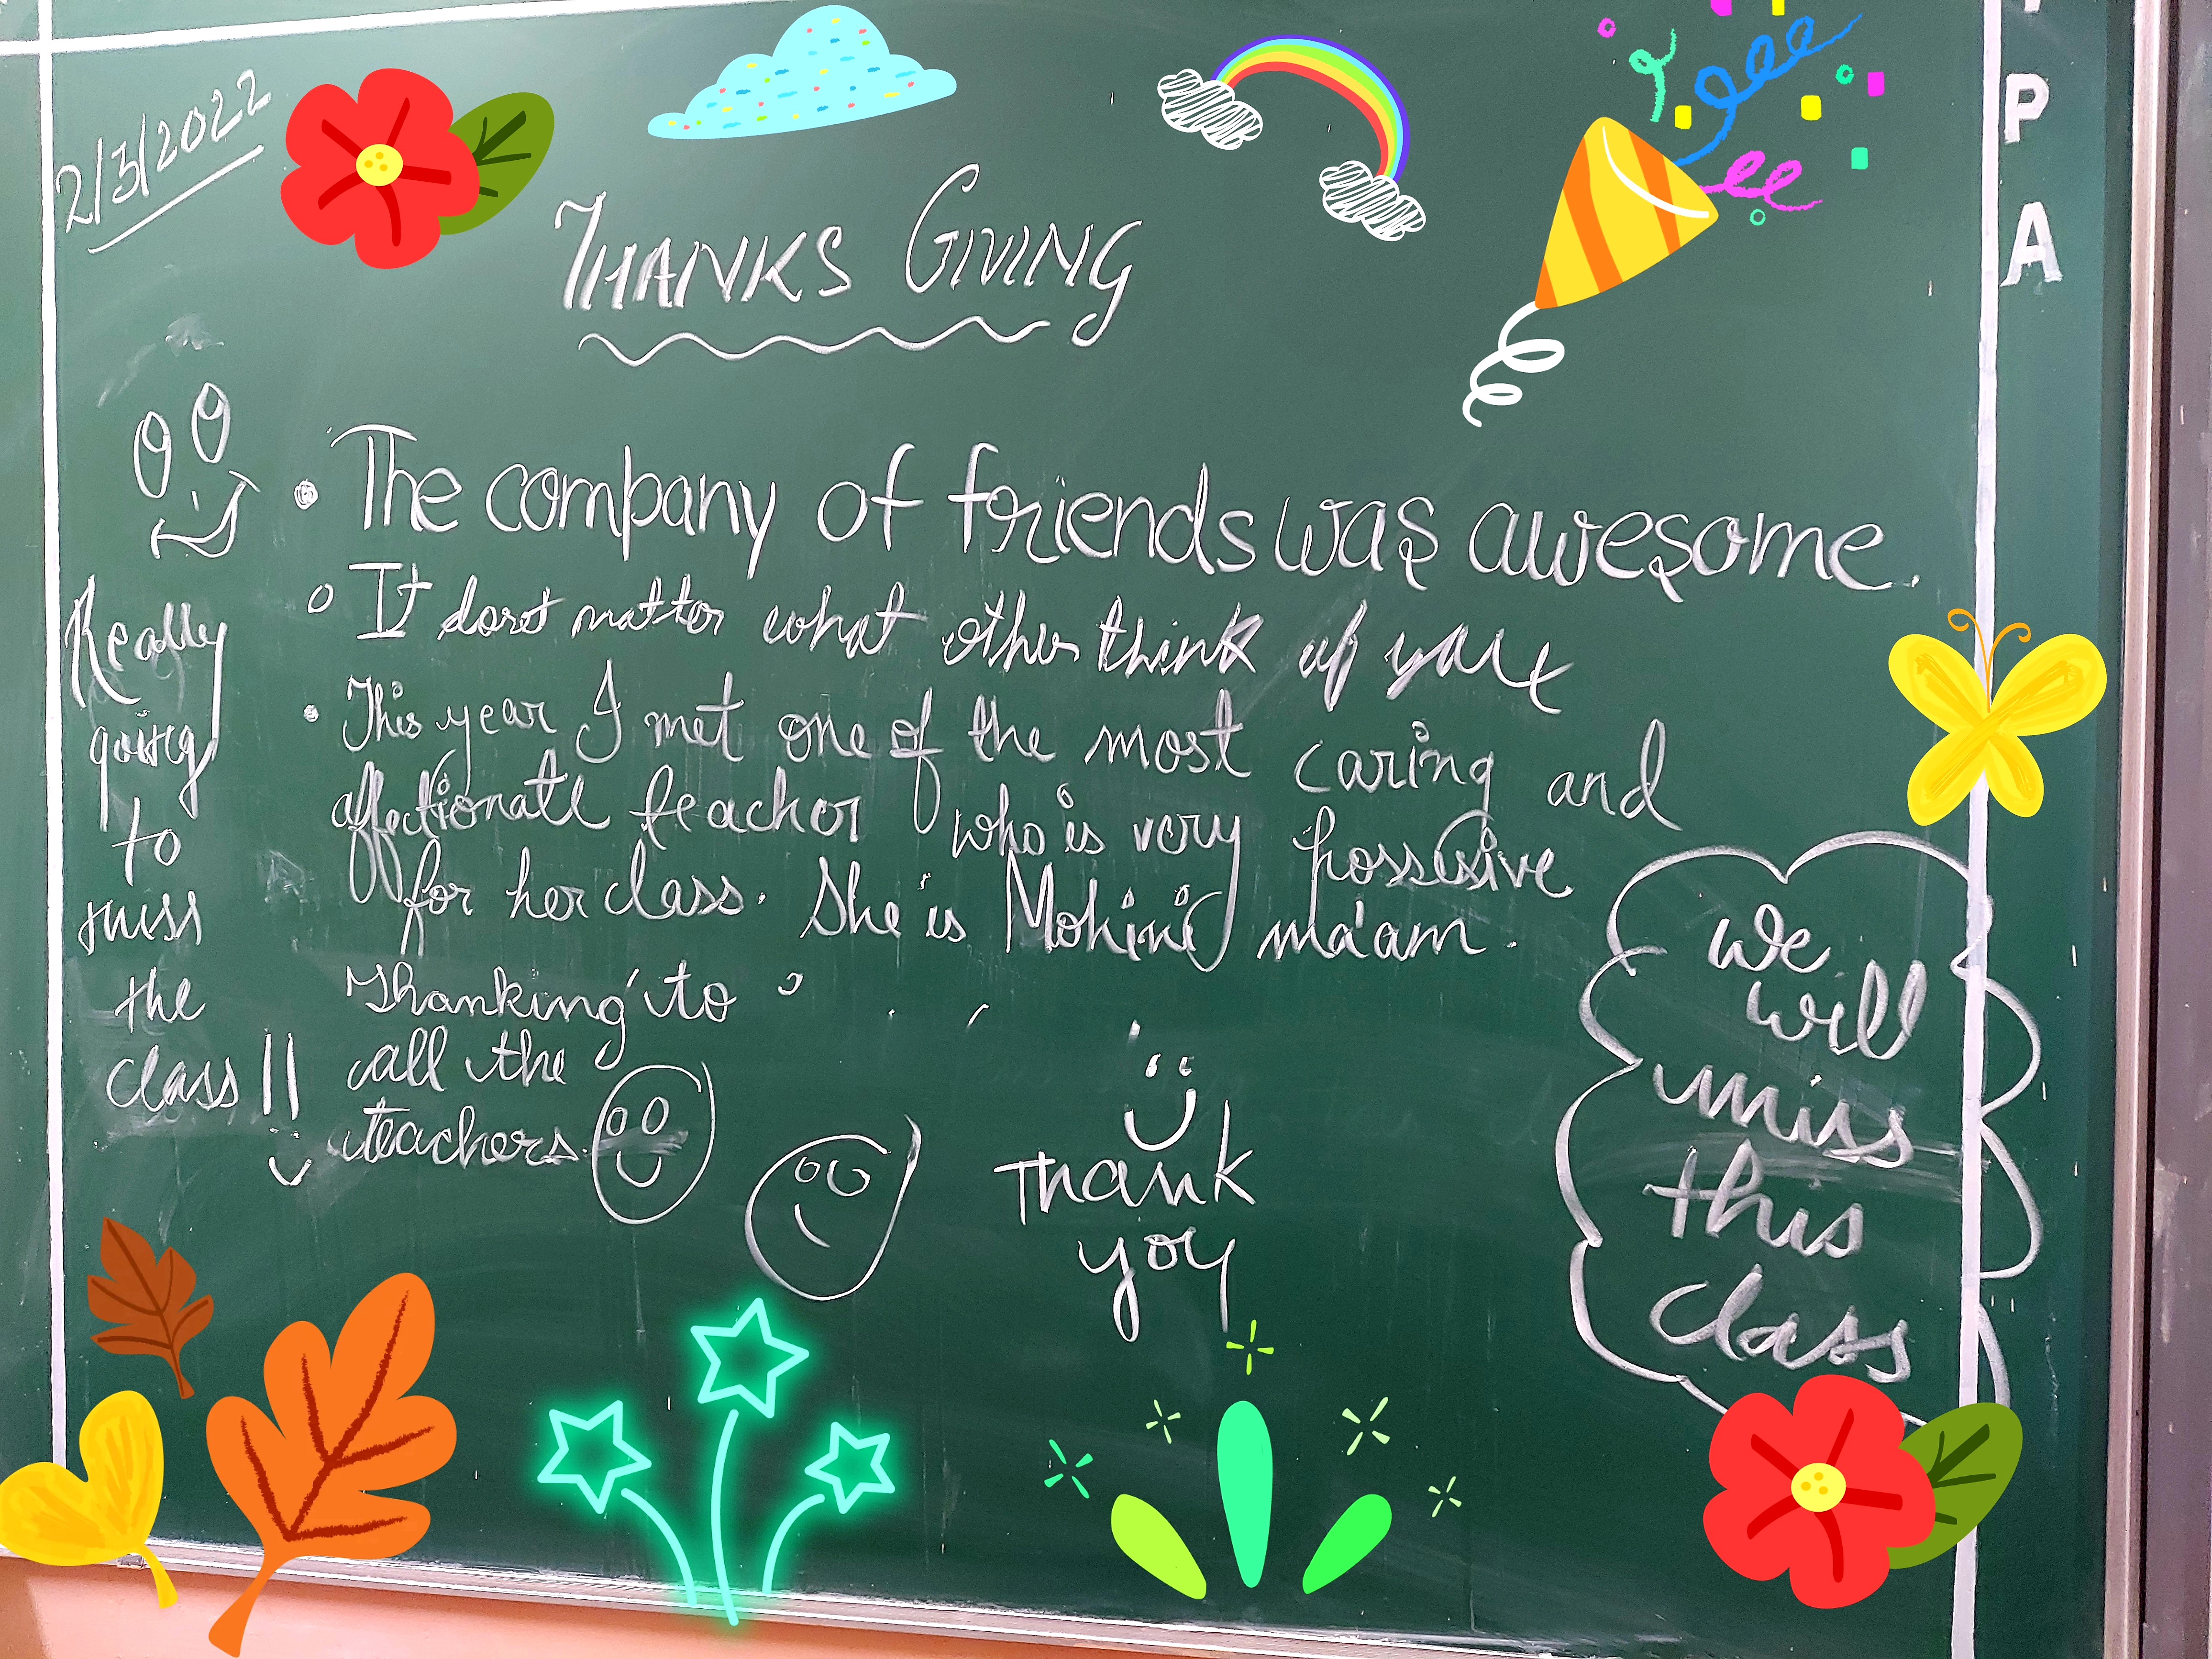 2/3/2022
THANKS GIVING
• The company of friends was awesome.
It dosnt mattor what other think of
• This year I met one of the most caring and
affectionate teachor who is very possesive
for her class. She is Mohini ma'am.
Thanking to
all the
teachers.
Really
going
to
miss
the
class !!
Thank
you
We
will
miss
this
class
P
A